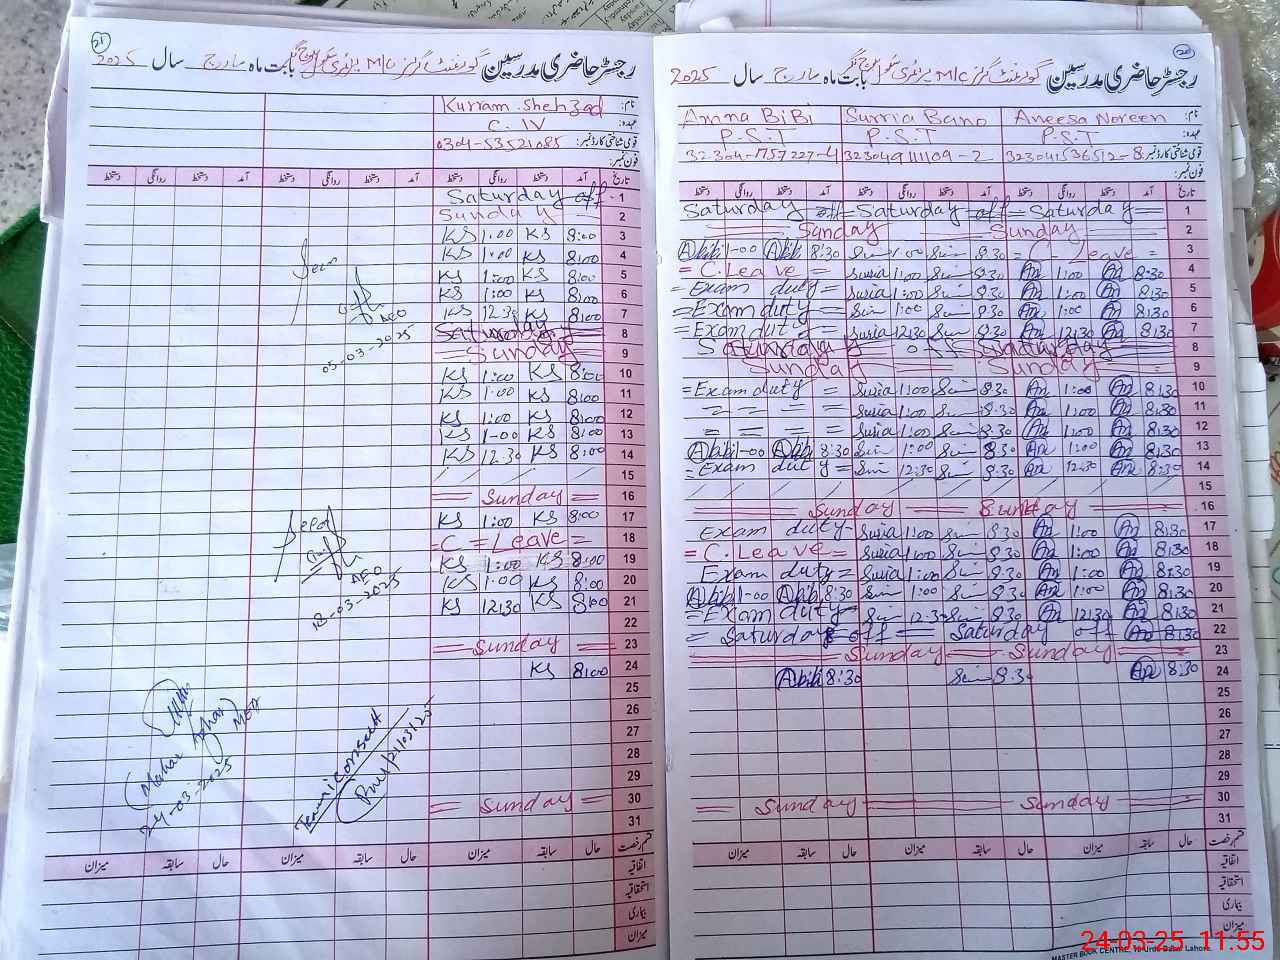 21
رجسٹر حاضری مدرسین گورنمنٹ گرلز M/C پرائمری سکول بابت ماہ مارچ سال 2025
نام: Kurram Shehzad
عہدہ: C. IV
قومی شناختی کارڈ نمبر: 0304-53521085
فون نمبر:
تاریخ آمد دستخط روانگی دستخط آمد دستخط روانگی دستخط
1 Saturday off
2 Sunday
3 KS 1:00 KS 8:00
4 KS 1:00 KS 8:00
5 KS 1:00 KS 8:00
6 KS 1:00 KS 8:00
7 KS 12.30 KS 8:00
8 Saturday
9 Sunday
10 KS 1:00 KS 8:00
11 KS 1:00 KS 8:00
12 KS 1:00 KS 8:00
13 KS 1-00 KS 8:00
14 KS 12.30 KS 8:00
15
16 = Sunday =
17 KS 1:00 KS 8:00
18 = C = Leave =
19 KS 1:00 KS 8:00
20 KS 1:00 KS 8:00
21 KS 12:30 KS 8:00
22
23 = Sunday =
24 KS 8:00
25
26
27
28
29
30 = Sunday =
31
AEO
05-03-2025
AEO
18-03-2025
24-03-2025
21/03/25
قسم رخصت حال سابقہ میزان حال سابقہ میزان حال سابقہ میزان
اتفاقیہ
استحقاقیہ
بیماری
میزان
20
رجسٹر حاضری مدرسین گورنمنٹ گرلز M/C پرائمری سکول بابت ماہ مارچ سال 2025
نام: Amna BiBi Surria Bano Aneesa Noreen
عہدہ: P.S.T P.S.T P.S.T
قومی شناختی کارڈ نمبر: 32304-1757227-4 32304911109-2 323041536512-8
فون نمبر:
تاریخ آمد دستخط روانگی دستخط آمد دستخط روانگی دستخط آمد دستخط روانگی دستخط
1 Saturday off = Saturday off = Saturday
2 Sunday Sunday
3 Abibi 1-00 Abibi 8:30 1:00 8.30 = C - Leave =
4 = C. Leave = Suria 1:00 8.30 An 1:00 An 8:30
5 = Exam duty = Suria 1:00 8.30 An 1:00 An 8:30
6 = Exam duty = 1:00 8.30 An 1:00 An 8:30
7 = Exam duty = Suria 12.30 8.30 An 12:30 An 8:30
8 Saturday off Saturday
9 Sunday Sunday
10 = Exam duty = Suria 1:00 8.30 An 1:00 An 8:30
11 = = = = Suria 1:00 8.30 An 1:00 An 8:30
12 = = = = Suria 1:00 8.30 An 1:00 An 8:30
13 Abibi 1-00 Abibi 8:30 1:00 8.30 An 1:00 An 8:30
14 = Exam duty = 12:30 8.30 An 12:30 An 8:30
15
16 Sunday Sunday
17 Exam duty - Suria 1:00 8.30 An 1:00 An 8:30
18 = C. Leave = Suria 1:00 8.30 An 1:00 An 8:30
19 Exam duty = Suria 1:00 8.30 An 1:00 An 8:30
20 Abibi 1-00 Abibi 8:30 1:00 8.30 An 1:00 An 8:30
21 = Exam duty 12.30 8.30 An 12:30 An 8:30
22 = Saturday off = Saturday off An 8:30
23 Sunday Sunday
24 Abibi 8:30 8.30 An 8:30
25
26
27
28
29
30 = Sunday = Sunday =
31
قسم رخصت حال سابقہ میزان حال سابقہ میزان حال سابقہ میزان
اتفاقیہ
استحقاقیہ
بیماری
میزان
MASTER BOOK CENTRE, Urdu Bazar Lahore.
24-03-25 11:55